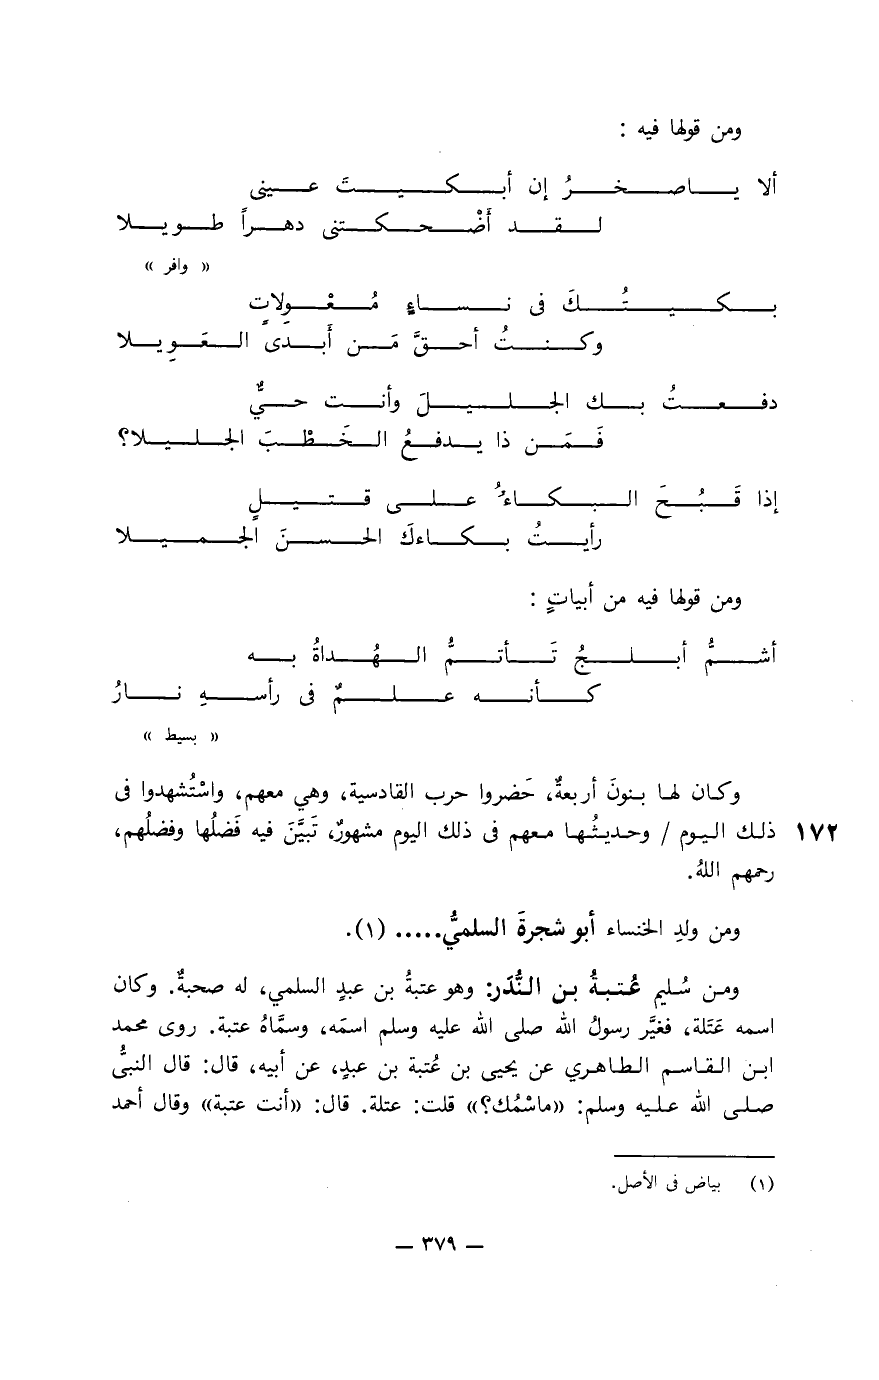 ومن قولها فيه :
ألا ياصخرُ إن أبكيتَ عينى
لقد أَضْحكتنى دهراً طويلا
« وافر »
بكيتُكَ فى نساءٍ مُعْوِلاتٍ
وكنتُ أحقَّ مَن أَبدَى العَوِيلا
دفعتُ بك الجليلَ وأنت حىٌّ
فَمَن ذا يدفعُ الخَطْبَ الجليلا؟
إذا قَبُحَ البكاءُ على قتيلٍ
رأيتُ بكاءكَ الحسنَ الجميلا
ومن قولها فيه من أبياتٍ :
أشمُّ أبلجُ تَأتمُّ الهُداةُ به
كأنه علمٌ فى رأسهِ نارُ
« بسيط »
وكان لها بنونَ أربعةٌ، حَضروا حرب القادسية، وهي معهم، واسْتُشهدوا فى
١٧٢ ذلك اليوم / وحديثُها معهم فى ذلك اليوم مشهورٌ، تَبيَّنَ فيه فَضلُها وفضلُهم،
رحمهم اللهُ.
ومن ولدِ الخنساء أبو شجرةَ السلميُّ..... (١).
ومن سُليم عُتبةُ بن النُّدَّر: وهو عتبةُ بن عبدٍ السلمي، له صحبةٌ. وكان
اسمه عَتَلة، فغيَّر رسولُ الله صلى الله عليه وسلم اسمَه، وسمَّاهُ عتبة. روى محمد
ابن القاسم الطاهري عن يحيى بن عُتبة بن عبدٍ، عن أبيه، قال: قال النبىُّ
صلى الله عليه وسلم: «ماسْمُك؟» قلت: عتلة. قال: «أنت عتبة» وقال أحمد
(١) بياض فى الأصل.
— ٣٧٩ —